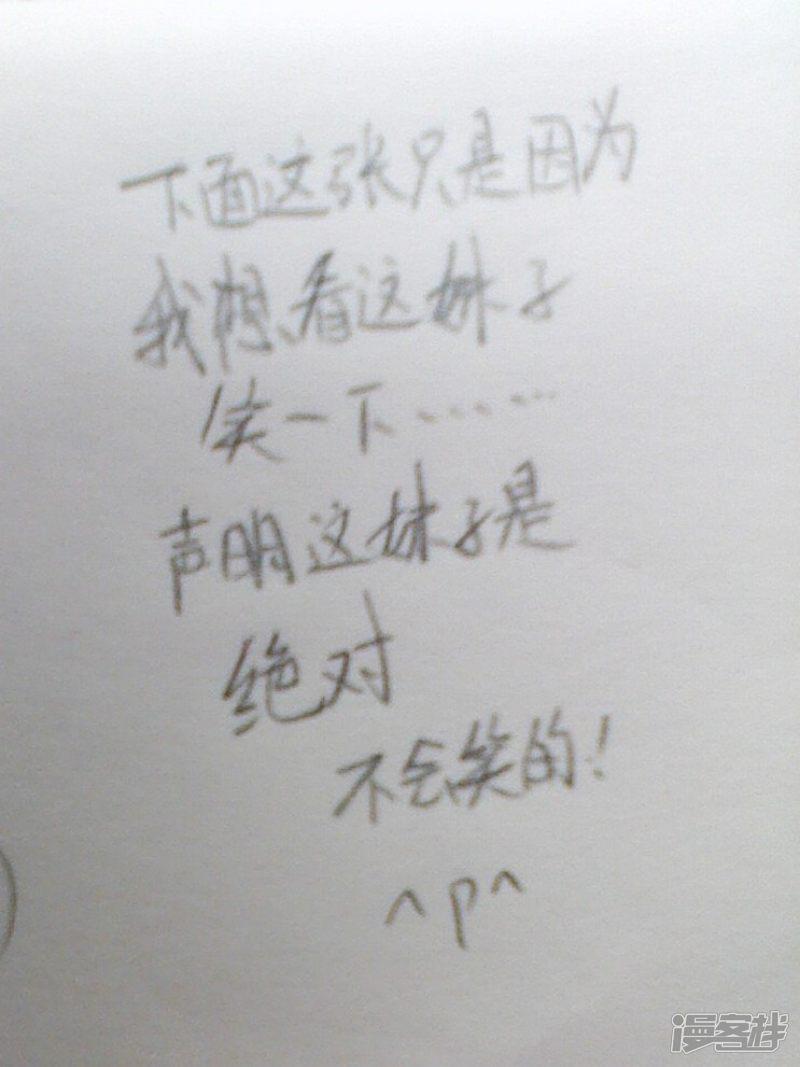 下面这张只是因为
我想看这妹子
笑一下……
声明这妹子是
绝对
不会笑的！
^p^
漫客栈